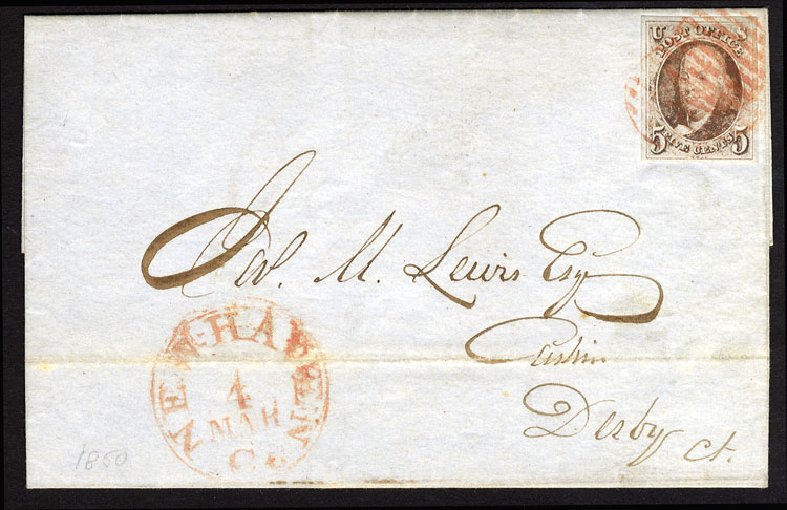 U S
POST OFFICE
5 FIVE CENTS 5
M. Lewis Esq
Derby Ct.
NEW-HAVEN
4
MAR
1850